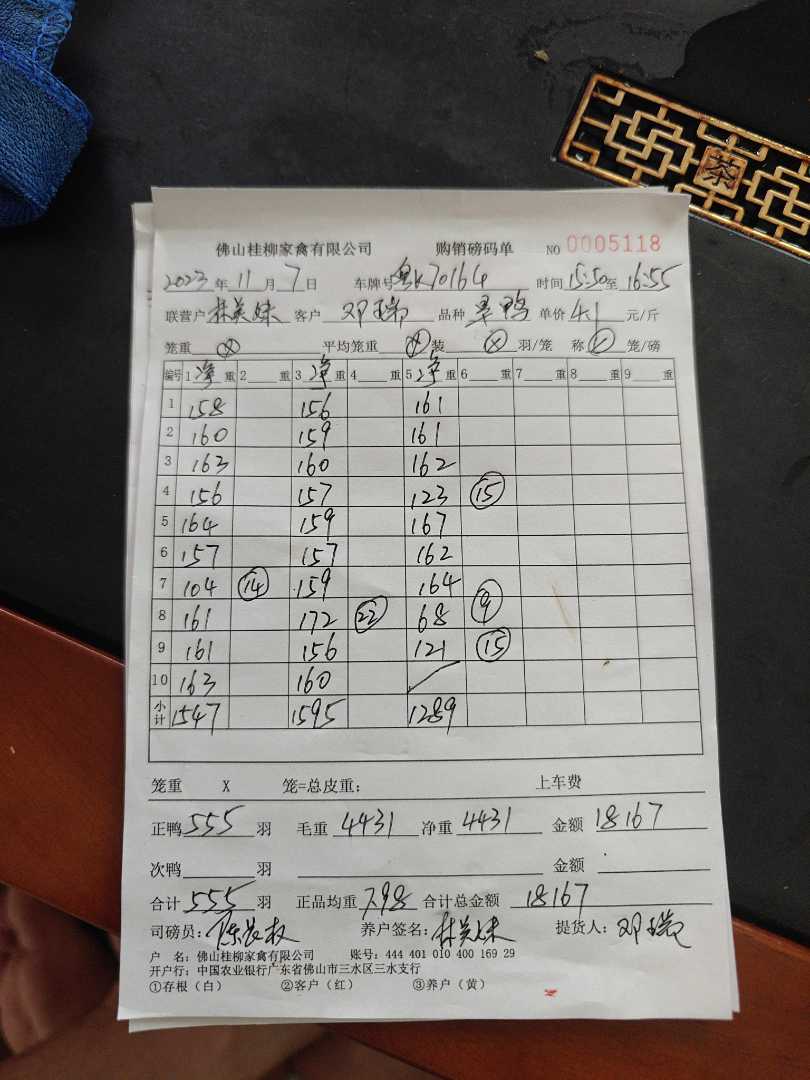 茶
佛山桂柳家禽有限公司 购销磅码单 NO 0005118
2023年11月7日 车牌号粤K70164 时间15:50至16:55
联营户林美妹 客户 邓瑞 品种 旱鸭 单价4.1元/斤
笼重 X 平均笼重 X 装 X 羽/笼 称 2 笼/磅
编号 1净重 2 重 3净重 4 重 5净重 6 重 7 重 8 重 9 重
1 158 156 161
2 160 159 161
3 163 160 162
4 156 157 123 ⑮
5 164 159 167
6 157 157 162
7 104 ⑭ 159 164
8 161 172 ㉒ 68 ⑨
9 161 156 121 ⑮
10 163 160 /
小计 1547 1595 1289
笼重 X 笼=总皮重: 上车费
正鸭555羽 毛重 4431 净重 4431 金额 18167
次鸭 羽 金额
合计555羽 正品均重7.98 合计总金额 18167
司磅员: 养户签名:林美妹 提货人:邓瑞
户 名:佛山桂柳家禽有限公司 账号:444 401 010 400 169 29
开户行:中国农业银行广东省佛山市三水区三水支行
①存根(白) ②客户(红) ③养户(黄)